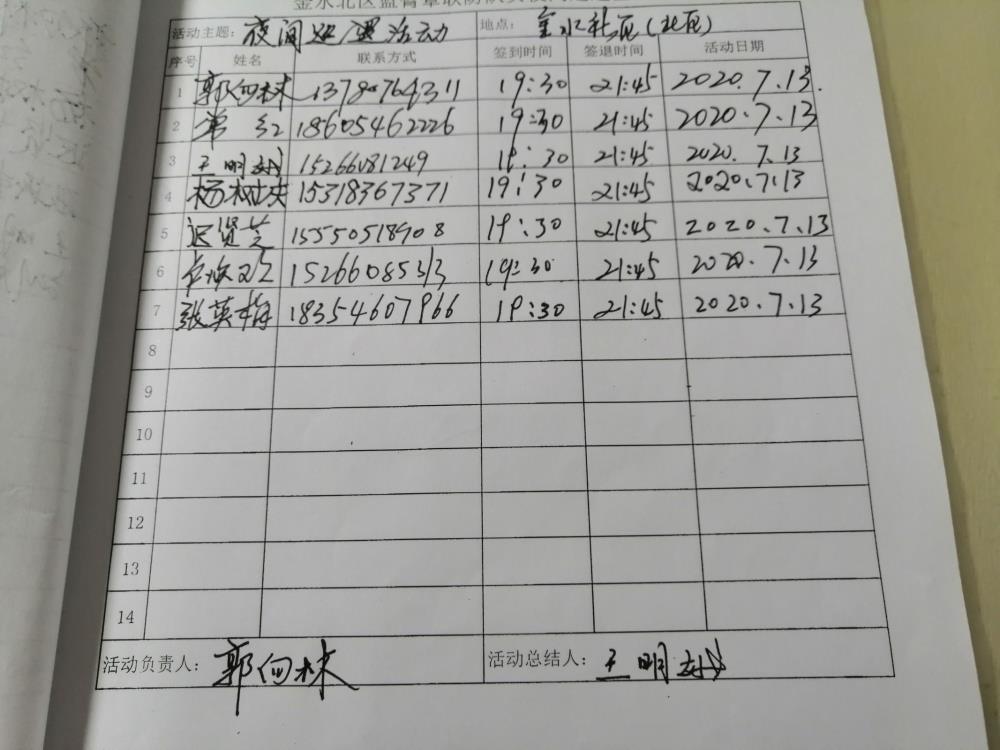 金水北区蓝臂章联防队员夜间巡逻
活动主题：夜间巡逻活动 地点：金水社区(北区)
序号 姓名 联系方式 签到时间 签退时间 活动日期
1 郭向林 13780764311 19:30 21:45 2020.7.13.
2 常红 18605462226 19:30 21:45 2020.7.13
3 王明 15266081249 19:30 21:45 2020.7.13
4 杨 15318367371 19:30 21:45 2020.7.13
5 迟贤芝 15550518908 19:30 21:45 2020.7.13
6 15266085313 19:30 21:45 2020.7.13
7 张英梅 18354607966 19:30 21:45 2020.7.13
8
9
10
11
12
13
14
活动负责人：郭向林 活动总结人：王明